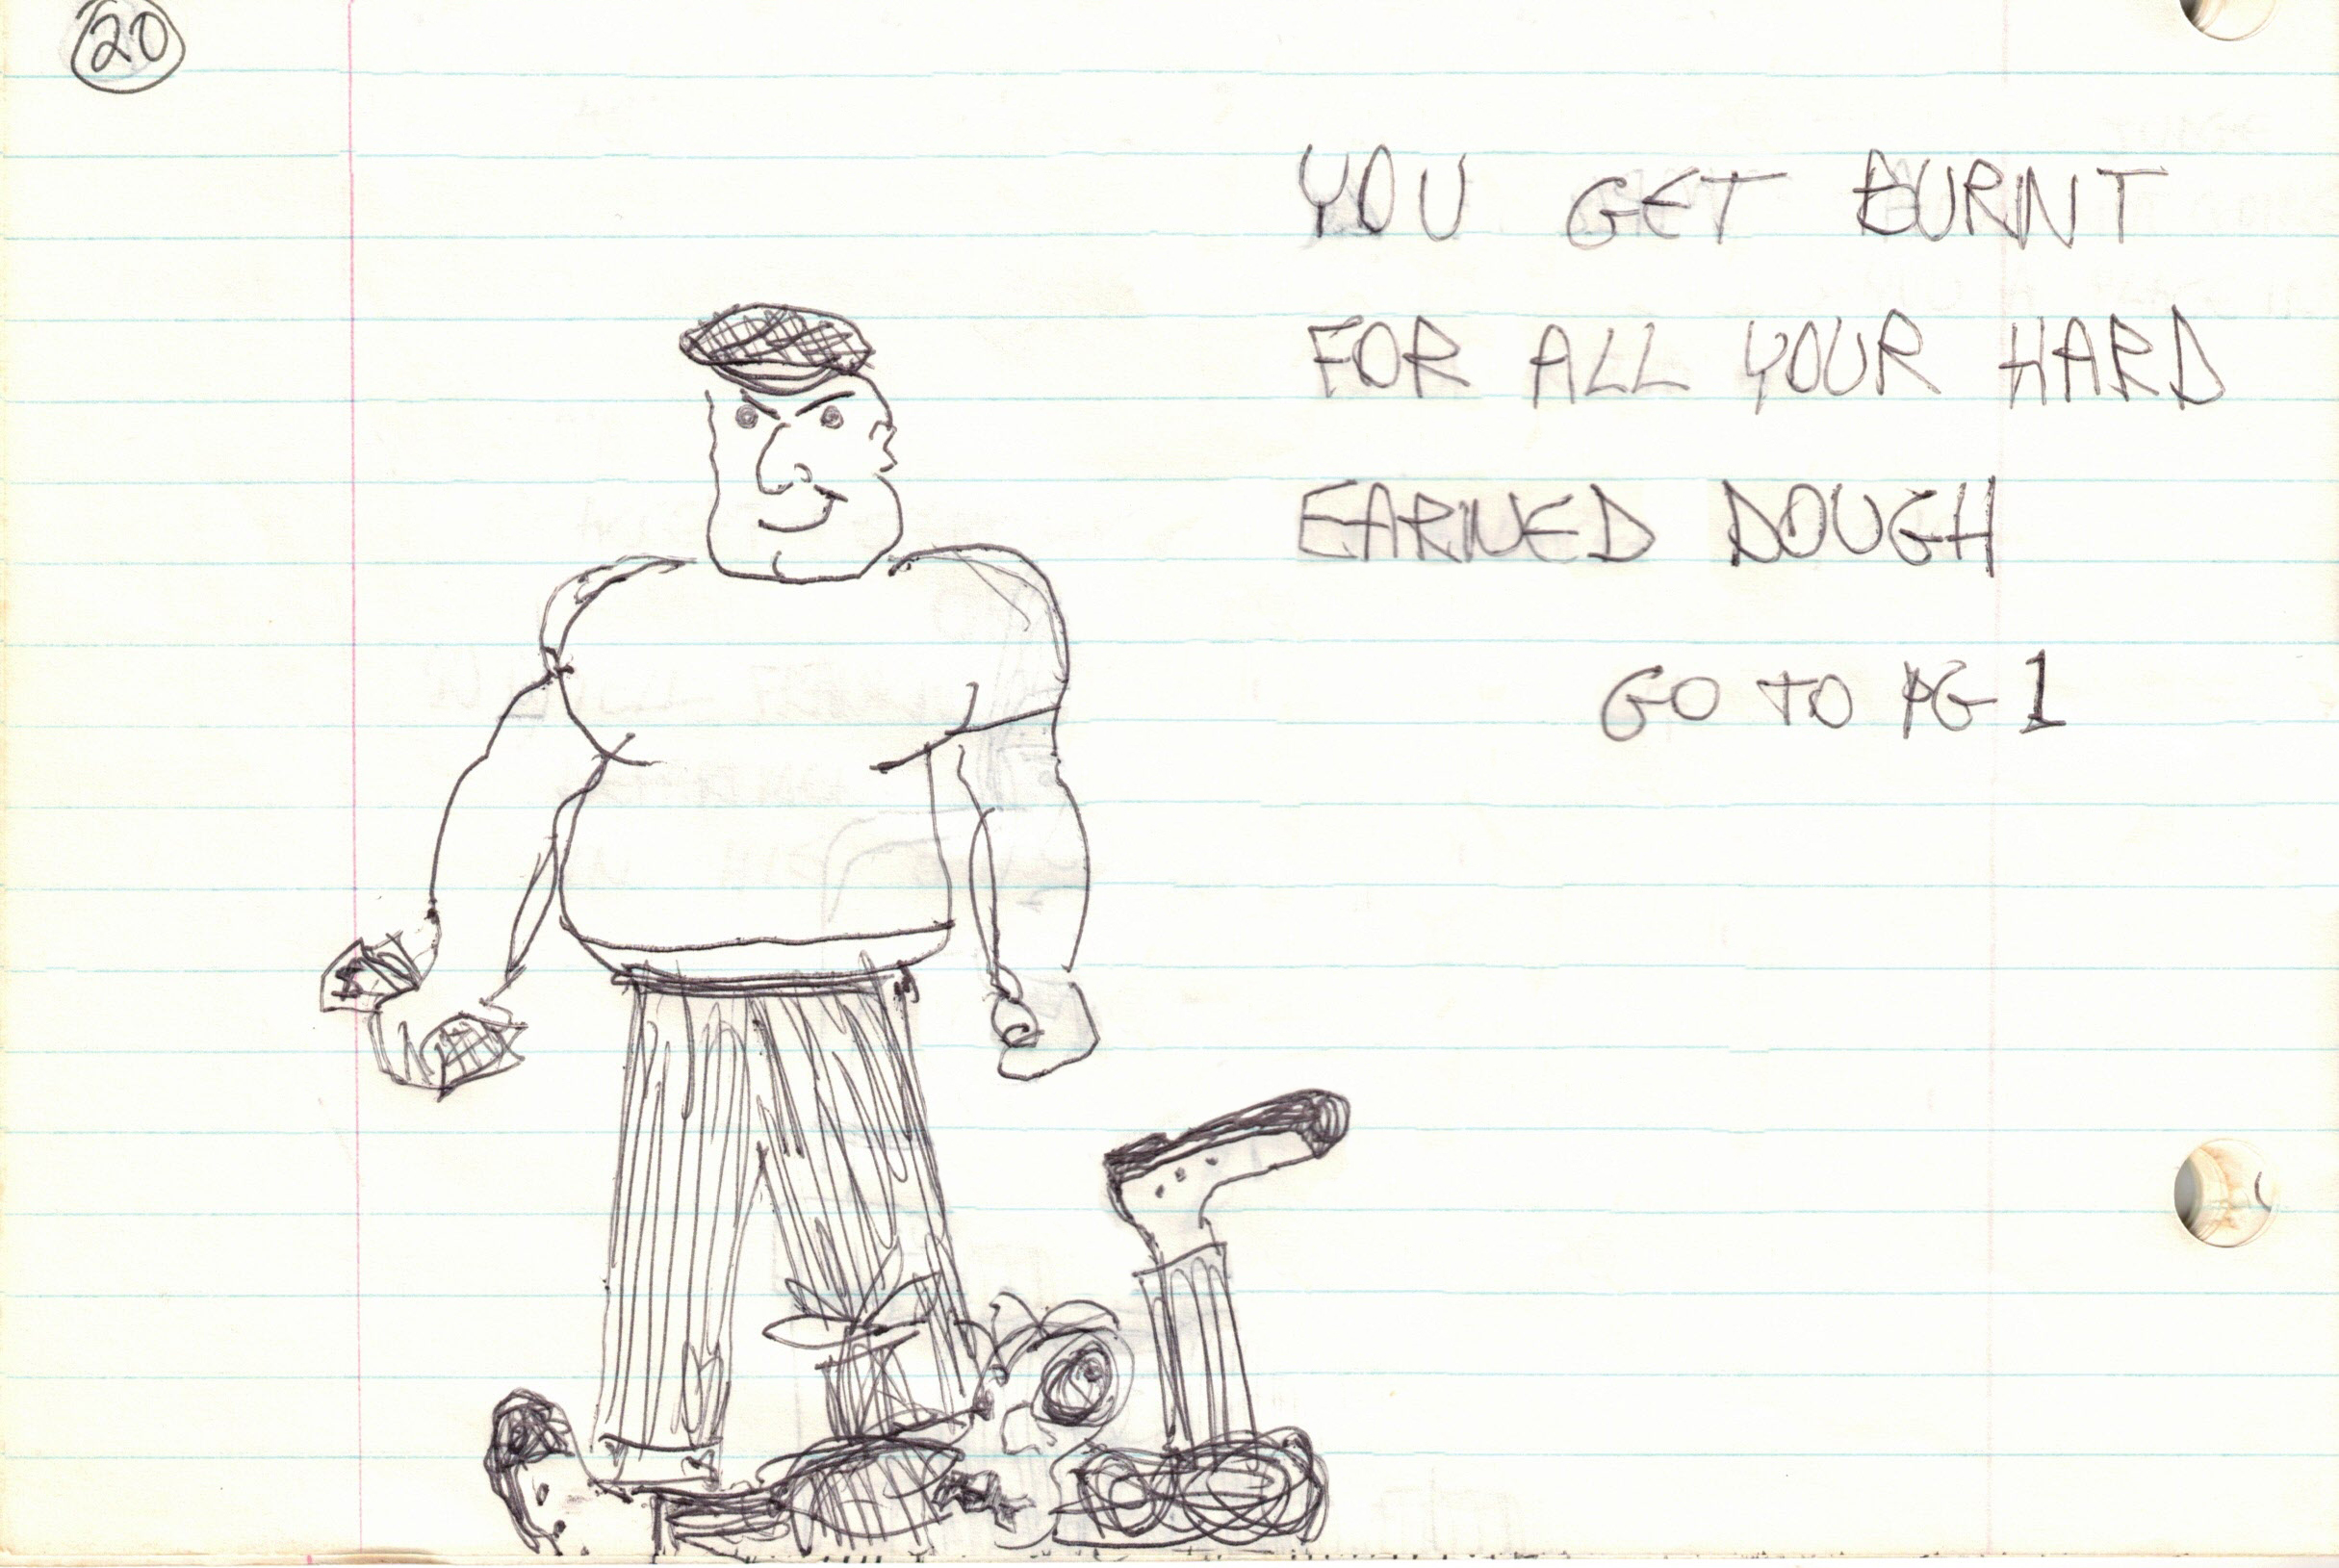 20
YOU GET BURNT
FOR ALL YOUR HARD
EARNED DOUGH
GO TO PG 1